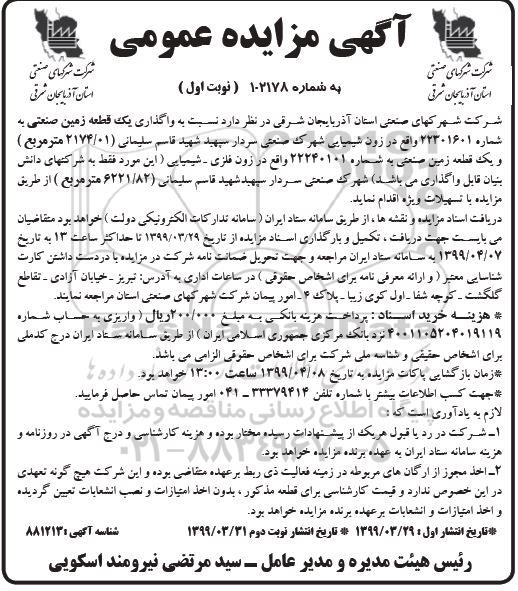 آگهی مزایده عمومی
به شماره ۲۱۷۸-۱ ( نوبت اول )
شرکت شهرکهای صنعتی
استان آذربایجان شرقی
شرکت شهرکهای صنعتی
استان آذربایجان شرقی
شـرکت شهـرکهای صنعتی استان آذربایجان شـرقی در نظر دارد نسبت به واگذاری یک قطعه زمین صنعتی به
شماره ۲۲۳۰۱۶۰۱ واقع در زون شیمیایی شهرک صنعتی سردار سپهبد شهید قاسم سلیمانی (۲۱۷۴/۰۱ مترمربع )
و یک قطعه زمین صنعتی به شماره ۲۲۲۴۰۱۰۱ واقع در زون فلزی - شیمیایی ( این مورد فقط به شرکتهای دانش
بنیان قابل واگذاری می باشد) شهرک صنعتی سردار سپهبدشهید قاسم سلیمانی (۶۲۲۱/۸۲ مترمربع ) از طریق
مزایده با تسهیلات ویژه اقدام نماید.
دریافت اسناد مزایده و نقشه ها ، از طریق سامانه ستاد ایران ( سامانه تدارکات الکترونیکی دولت ) خواهد بود متقاضیان
می بایست جهت دریافت ، تکمیل و بارگذاری اسناد مزایده از تاریخ ۱۳۹۹/۰۳/۲۹ تا حداکثر ساعت ۱۳ به تاریخ
۱۳۹۹/۰۴/۰۷ به سامانه ستاد ایران مراجعه و جهت تحویل ضمانت نامه شرکت در مزایده با دردست داشتن کارت
شناسایی معتبر ( و ارائه معرفی نامه برای اشخاص حقوقی ) در ساعات اداری به آدرس: تبریز - خیابان آزادی - تقاطع
گلگشت - کوچه شفا - اول کوی زیبا - پلاک ۴ - امور پیمان شرکت شهرکهای صنعتی استان مراجعه نمایند.
* هزینه خرید اسناد : پرداخت هزینه بانکی به مبلغ ۲۰۰/۰۰۰ریال ( واریزی به حساب شماره
۴۰۰۱۱۰۵۲۰۴۰۱۹۱۱۹ نزد بانک مرکزی جمهوری اسلامی ایران ) از طریق سامانه ستاد ایران درج کدملی
برای اشخاص حقیقی و شناسه ملی شرکت برای اشخاص حقوقی الزامی می باشد.
*زمان بازگشایی پاکات مزایده به تاریخ ۱۳۹۹/۰۴/۰۸ ساعت ۱۳:۰۰ خواهد بود.
*جهت کسب اطلاعات بیشتر با شماره تلفن ۳۳۳۷۹۴۱۴ ـ ۰۴۱ امور پیمان تماس حاصل فرمایید.
لازم به یادآوری است که :
۱ـ شرکت در رد یا قبول هریک از پیشنهادات رسیده مختار بوده و هزینه کارشناسی و درج آگهی در روزنامه و
هزینه سامانه ستاد ایران به عهده برنده مزایده خواهد بود.
۲ـ اخذ مجوز از ارگان های مربوطه در زمینه فعالیت ذی ربط برعهده متقاضی بوده و این شرکت هیچ گونه تعهدی
در این خصوص ندارد و قیمت کارشناسی برای قطعه مذکور ، بدون اخذ امتیازات و نصب انشعابات تعیین گردیده
و اخذ امتیازات و انشعابات برعهده برنده مزایده خواهد بود.
*تاریخ انتشار اول : ۱۳۹۹/۰۳/۲۹ * تاریخ انتشار نوبت دوم ۱۳۹۹/۰۳/۳۱ شناسه آگهی : ۸۸۱۲۱۳
رئیس هیئت مدیره و مدیر عامل ـ سید مرتضی نیرومند اسکویی